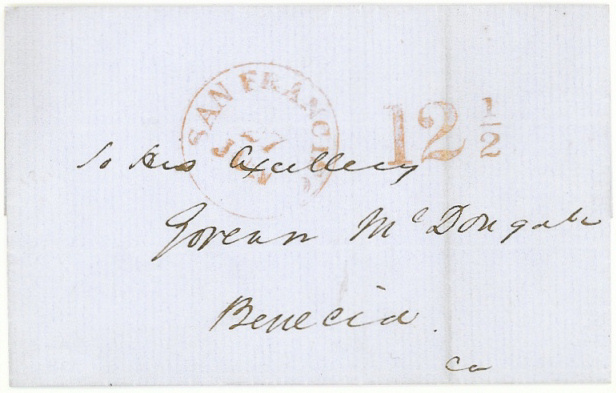 SAN FRANCISCO
27
JUN
12 1/2
To His Excellency
Govern McDougal
Benecia.
Ca